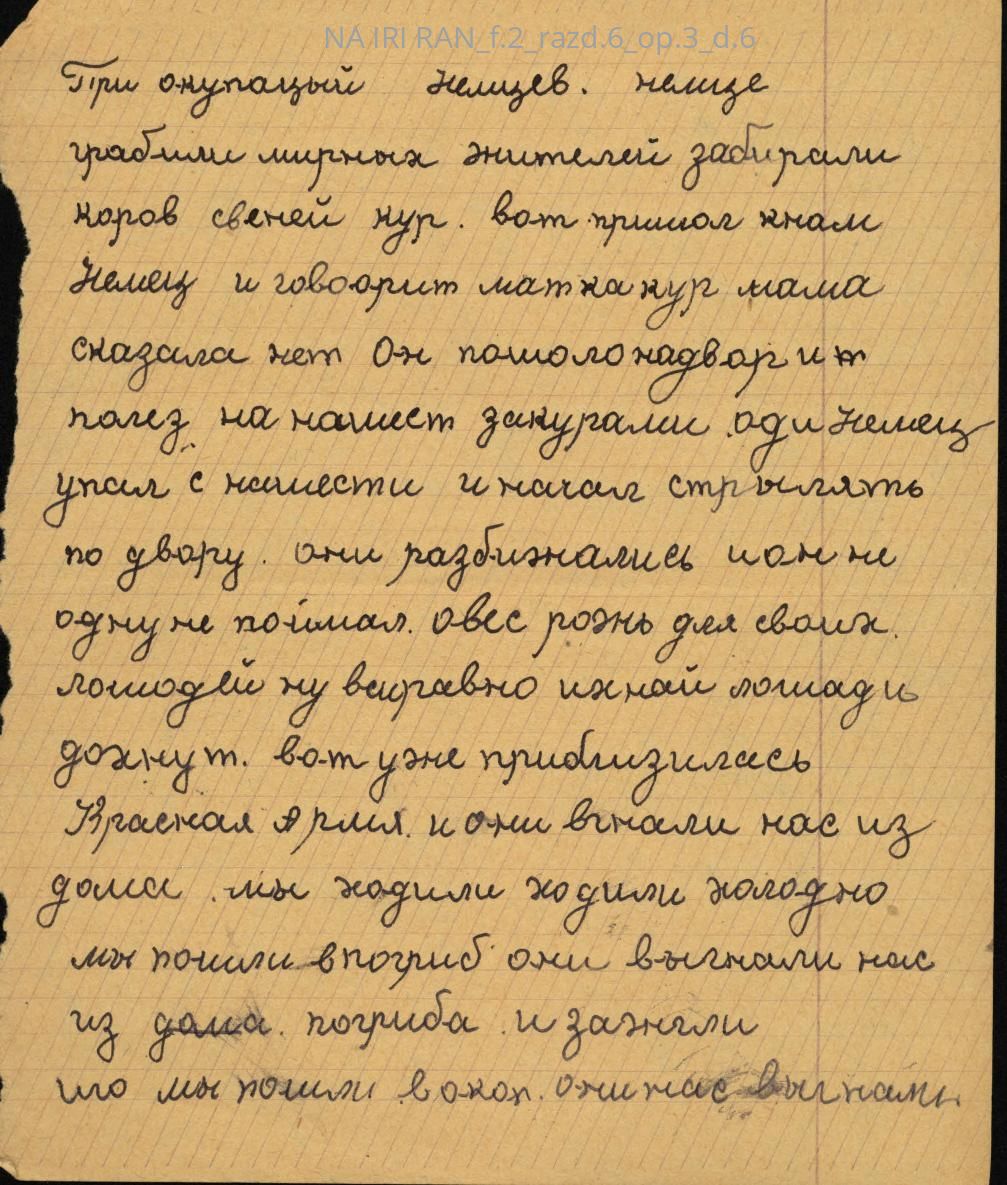 NA IRI RAN_f.2_razd.6_op.3_d.6
При окупацый Немцев. немце
грабили мирных жителей забирали
коров свеней кур. вот пришол кнам
Немец и говоорит матка кур мама
сказала нет Он пошолонадвор ит
полез на нашест закурами оди Немец
упал с нашести и начал стрылять
по двору. они разбижались и он не
одну не поймал. овес рожь для своих.
лошодей ну всиравно ихнай лошади
дохнут. вот уже приблизилась
Красная Армия. и они вгнали нас из
дома. мы ходили ходили холодно
мы пошли впогриб они выгнали нас
из дома. погриба. и зажгли
иго мы пошли вокоп. они нас выгнали